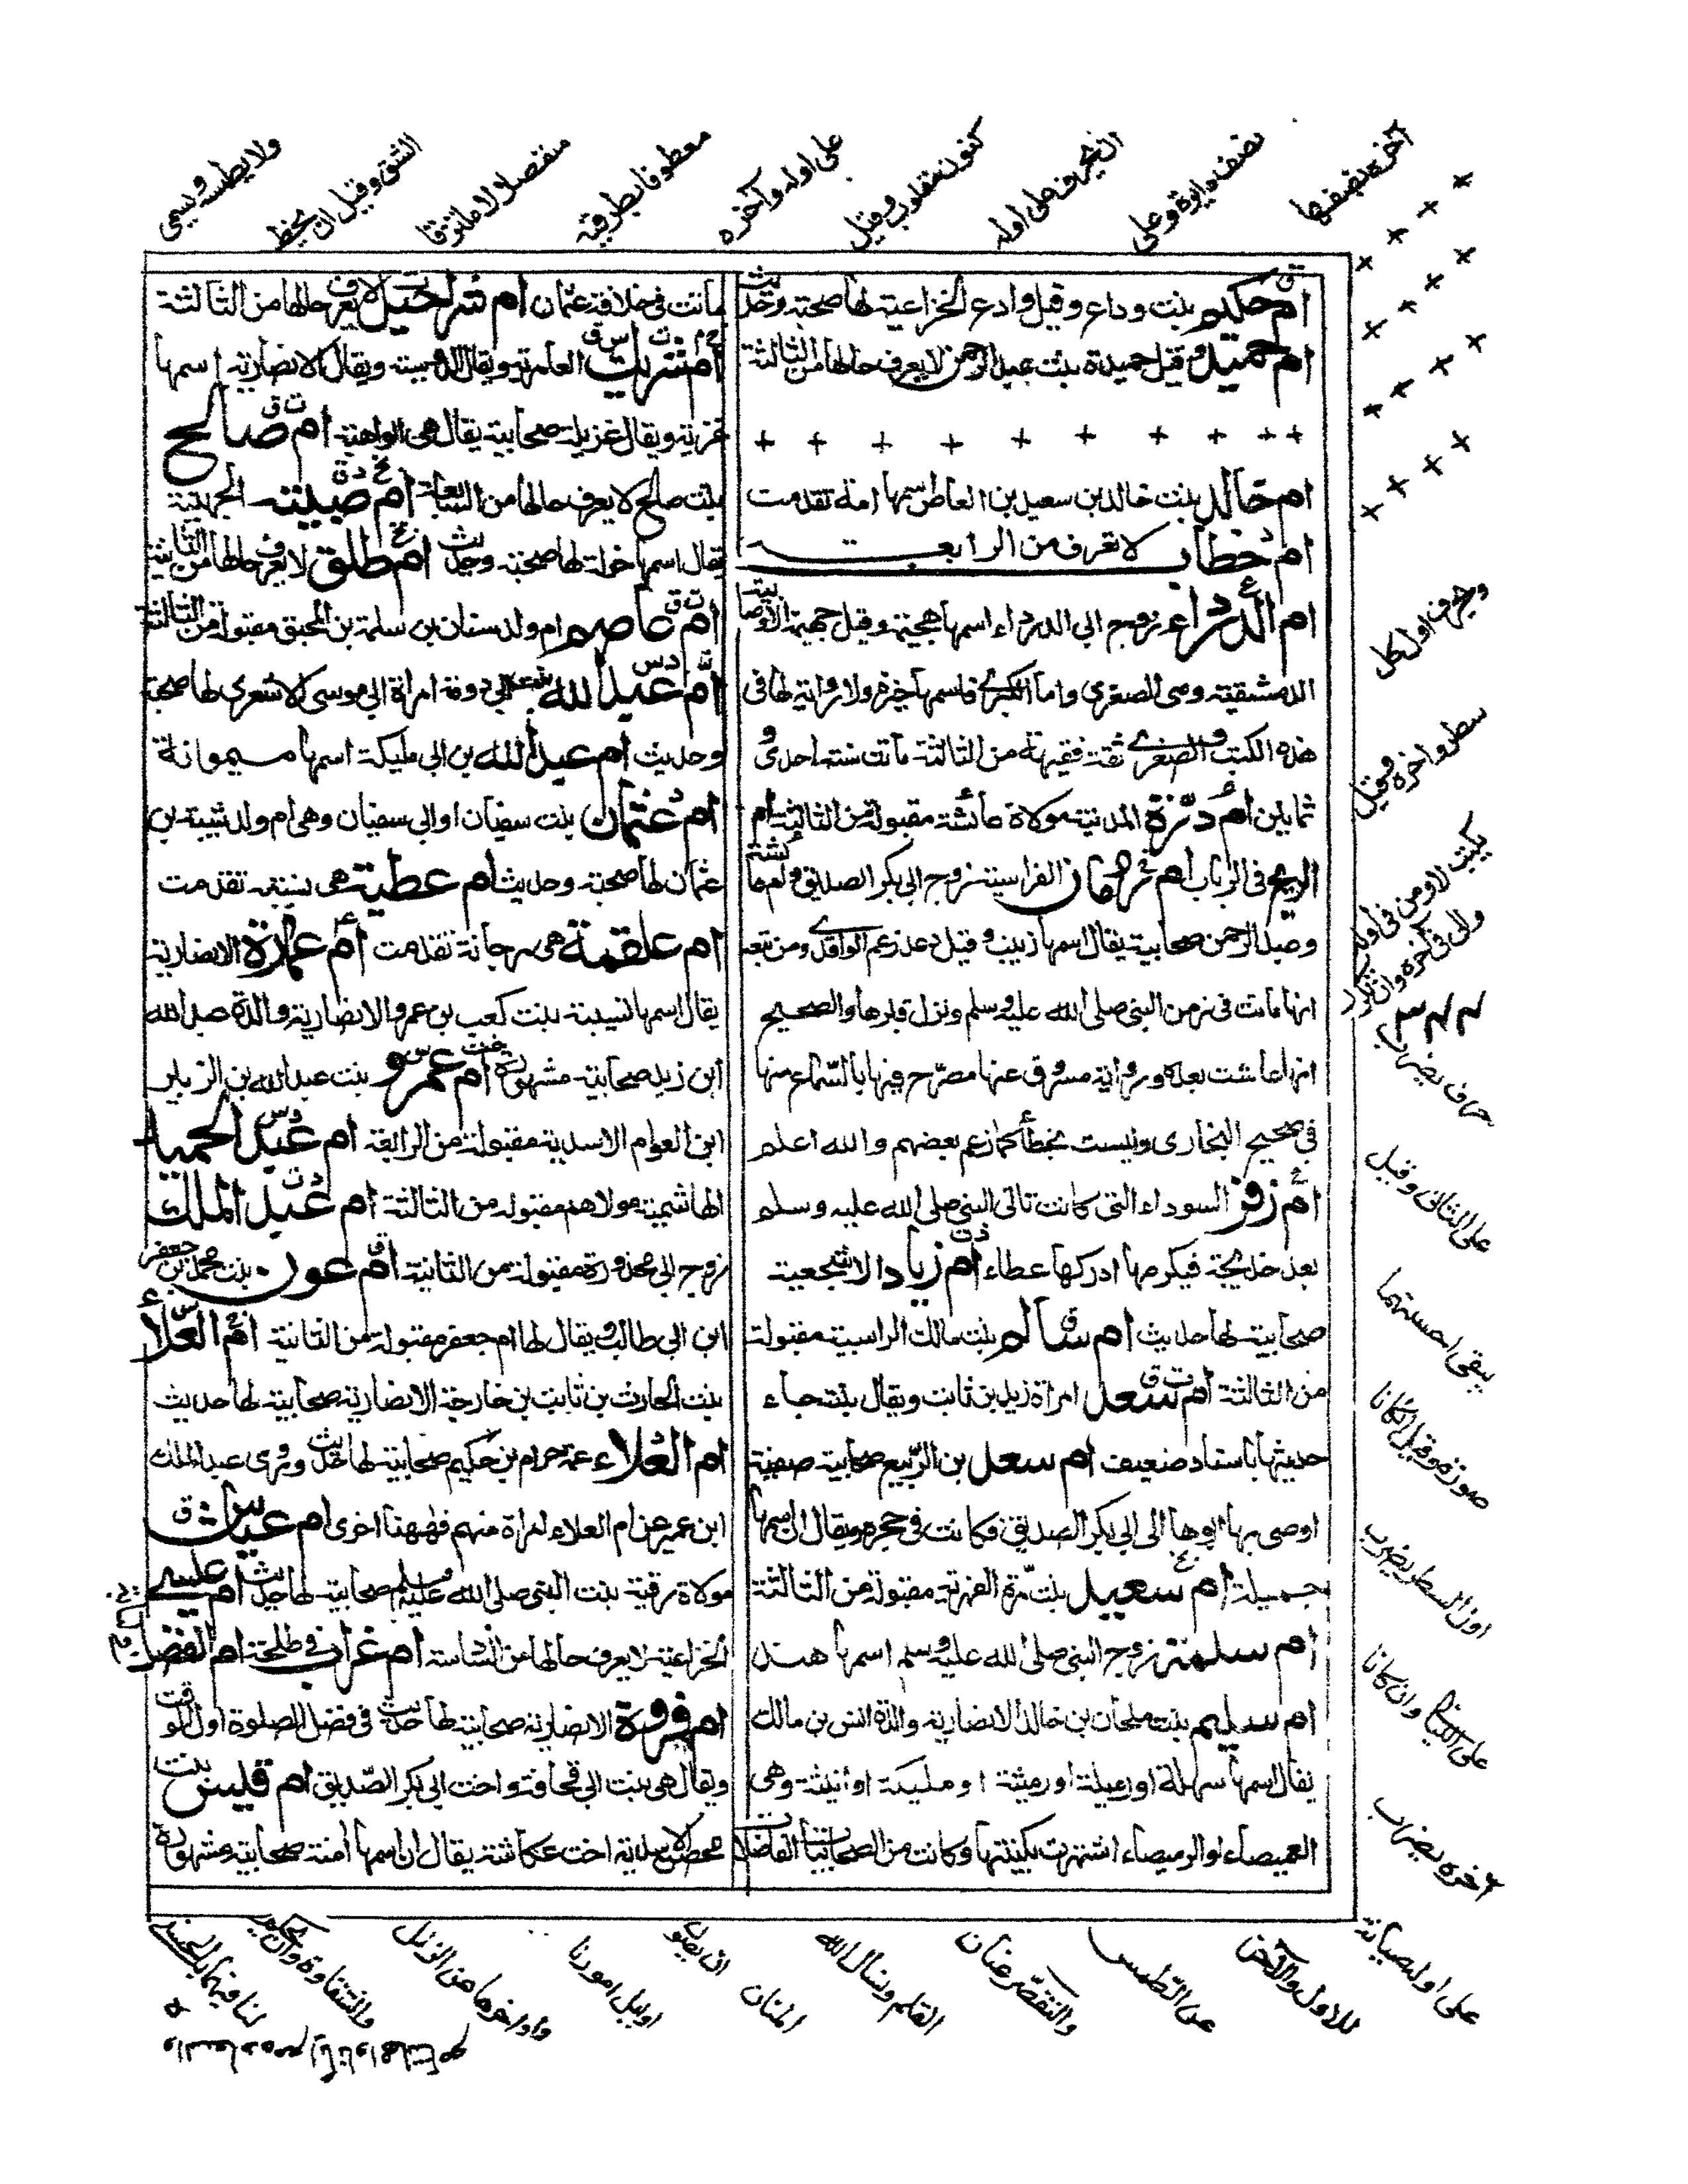 ام حكيم بنت وداع وقيل وادع الخزاعية لها صحبة وحديث
ام حميد وقيل حميدة بنت عبد الرحمن لا يعرف حالها من الثالثة
ام خالد بنت خالد بن سعيد بن العاص اسمها امة تقدمت
ام خطاب لا تعرف من الرابعة
ام الدرداء زوج ابي الدرداء اسمها هجيمة وقيل جهيمة الاوصابية
الدمشقية وهى الصغرى واما الكبرى فاسمها خيرة ولا رواية لها فى
هذه الكتب والصغرى ثقة فقيهة من الثالثة ماتت سنة احدى و
ثمانين ام ذرة المدنية مولاة عائشة مقبولة من الثالثة ام
الربيع فى الرباب ام رومان الفراسية زوج ابي بكر الصديق وام عائشة
وعبد الرحمن صحابية يقال اسمها زينب وقيل دعد زعم الواقدى ومن تبعه
انها ماتت فى زمن النبى صلى الله عليه وسلم ونزل قبرها والصحيح
انها عاشت بعده ورواية مسروق عنها مصرح فيها بالسماع منها
فى صحيح البخارى وليست بخطأ كما زعم بعضهم والله اعلم
ام زفر السوداء التى كانت تاتى النبى صلى الله عليه وسلم
بعد خديجة فيكرمها ادركها عطاء ام زياد الاشجعية
صحابية لها حديث ام سالم بنت مالك الراسبية مقبولة
من الثالثة ام سعد امراة زيد بن ثابت ويقال بنته جاء
حديثها باسناد ضعيف ام سعد بن الربيع صحابية صغيرة
اوصى بها ابوها الى ابي بكر الصديق فكانت فى حجره ويقال ان اسمها
جميلة ام سعيد بنت مرة الفهرية مقبولة من الثالثة
ام سلمة زوج النبى صلى الله عليه وسلم اسمها هند
ام سليم بنت ملحان بن خالد الانصارية والدة انس بن مالك
يقال اسمها سهلة او رميلة او رميثة او مليكة او انيثة وهى
الغميصاء او الرميصاء اشتهرت بكنيتها وكانت من الصحابيات الفاضلات
ماتت فى خلافة عثمان ام شراحيل لا يعرف حالها من الثالثة
ام شريك العامرية ويقال الدوسية ويقال الانصارية اسمها
غزية ويقال غزيلة صحابية يقال هى الواهبة ام صالح
بنت صالح لا يعرف حالها من السابعة ام صبية الجهنية
يقال اسمها خولة لها صحبة وحديث ام طلق لا يعرف حالها من الثانية
ام عاصم ام ولد سنان بن سلمة بن المحبق مقبولة من الثالثة
ام عبد الله بنت ابي دومة امراة ابي موسى الاشعرى لها صحبة
وحديث ام عبد الله بن ابي مليكة اسمها ميمونة
ام عثمان بنت سفيان او ابي سفيان وهى ام ولد شيبة بن
عثمان لها صحبة وحديث ام عطية هى نسيبة تقدمت
ام علقمة هى مرجانة تقدمت ام عمارة الانصارية
يقال اسمها نسيبة بنت كعب بن عمرو الانصارية والدة عبد الله
ابن زيد صحابية مشهورة ام عمرو بنت عبد الله بن الزبير
ابن العوام الاسدية مقبولة من الرابعة ام عبد الحميد
الهاشمية مولاهم مقبولة من الثالثة ام عبد الملك
زوج ابي محذورة مقبولة من الثانية ام عون بنت محمد بن جعفر
ابن ابي طالب ويقال لها ام جعفر مقبولة من الثانية ام العلاء
بنت الحارث بن ثابت بن خارجة الانصارية صحابية لها حديث
ام العلاء عمة حرام بن حكيم صحابية لها حديث وروى عبد الملك
ابن عمير عن ام العلاء امراة منهم فلعلها اخرى ام عياش
مولاة رقية بنت النبى صلى الله عليه وسلم صحابية لها حديث ام عيسى
الخزاعية لا يعرف حالها من السادسة ام غراب فى طلحة ام الفضل
ام فروة الانصارية صحابية لها حديث فى فضل الصلوة اول الوقت
ويقال هى بنت ابي قحافة واخت ابي بكر الصديق ام قيس بنت
محصن الاسدية اخت عكاشة يقال ان اسمها امنة صحابية مشهورة
ولا يطمسه ويسمى
الشق وقيل ان يخط
منفصلا ولا ملتزقا
معطوفا بطرفيه
على اوله وآخره
كنون مقلوب وقيل
على اوله
نصف دايرة وعلى
آخره نصفها
وحرف اول كل
سطر واخره وقيل
يكتب لا ومن فى اوله
والى فى آخره وان تكرر
حرف يضرب
على الثانى وقيل
يبقى احسنهما
صورة وقيل ان كانا
اول السطر يضرب
على الثانى وان كانا
آخره يضرب
على اوله صيانة
للاول والآخر
عن الطمس
القلم ونسال الله
المنان
ان يصون
اوائل امورنا
واواخرها عن الزلل